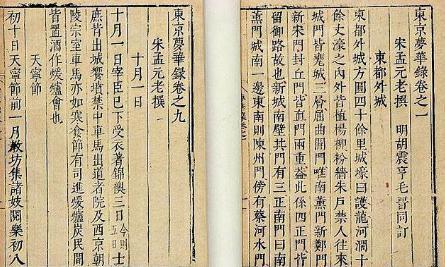 東京夢華錄卷之一
宋孟元老撰 明胡震亨毛晉同訂
東都外城
東都外城方圓四十餘里城壕曰護龍河濶十
餘丈濠之內外皆植楊柳粉牆朱戶禁人往來
城門皆甕城三層屈曲開門唯南薰門新鄭門
新宋門封丘門皆直門兩重蓋此係四正門皆
留御路故也新城南壁其門有三正南門曰南
薰門城南一邊東南則陳州門傍有蔡河水門
東京夢華錄卷之九
宋孟元老撰
十月一日
十月一日宰臣已下受衣著錦襖三日今則五日士
庶皆出城饗墳禁中車馬出道者院及西京朝
陵宗室車馬亦如寒食節有司進煖爐炭民間
皆置酒作煖爐會也
天寧節
初十日天寧節前一月教坊集諸妓閱樂初八